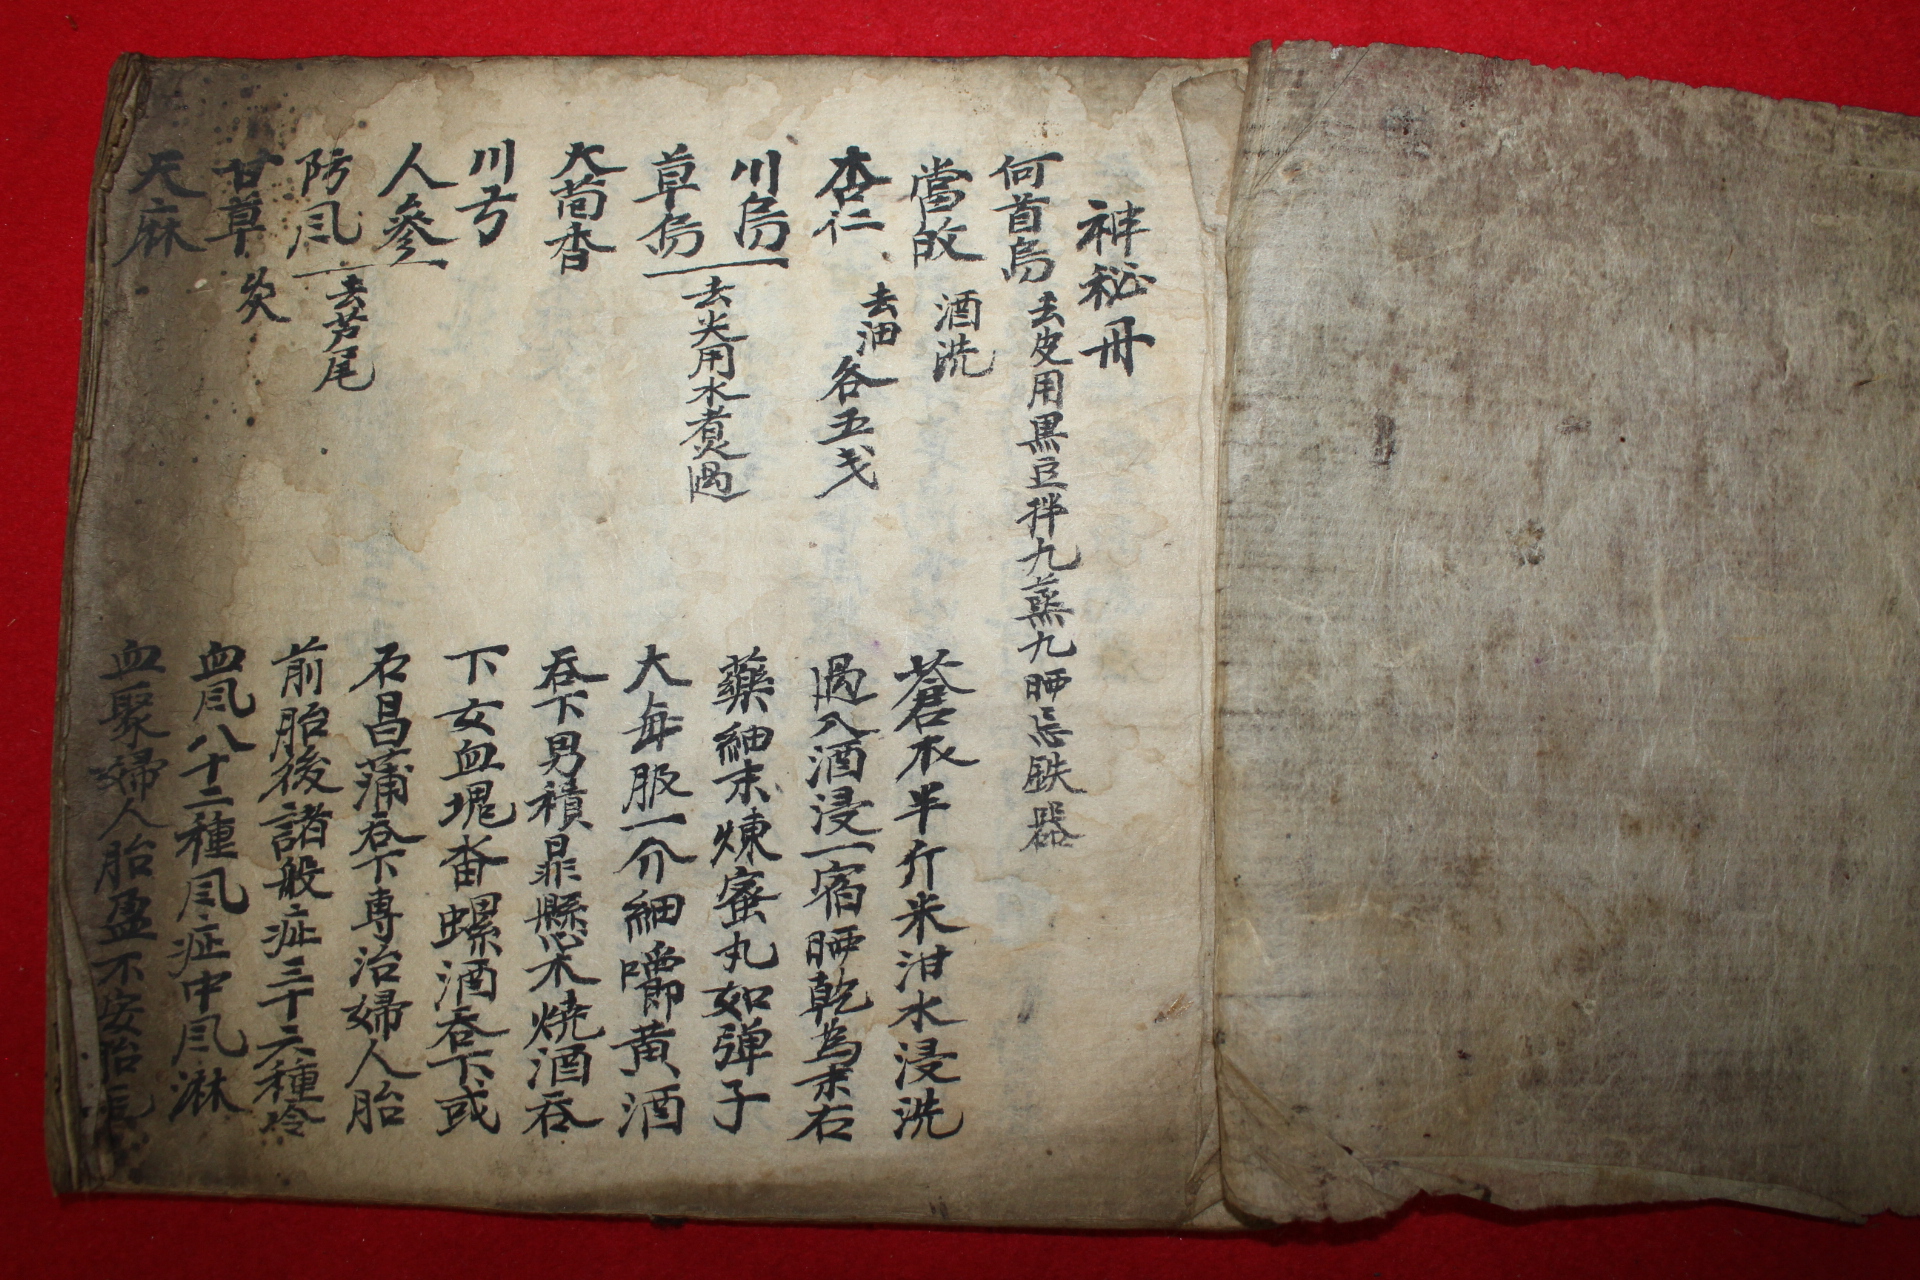 神秘丹
何首烏 去皮用黑豆拌九蒸九晒忌鉄器
當的 酒洗
杏仁 去油 各五戔
川烏
草烏 去尖用水煮過
大茴香
川芎
人參
防風 去芦尾
甘草 炙
天麻
蒼朮半斤米泔水浸洗
過入酒浸一宿晒乾為末右
藥細末煉蜜丸如弾子
大每服一介細嚼黄酒
吞下男積𤴯懸木燒酒吞
下女血塊畨螺酒吞下或
石昌蒲吞下專治婦人胎
前胎後諸般症三十六種冷
血風八十二種風症中風淋
血聚婦人胎盈不安胎長